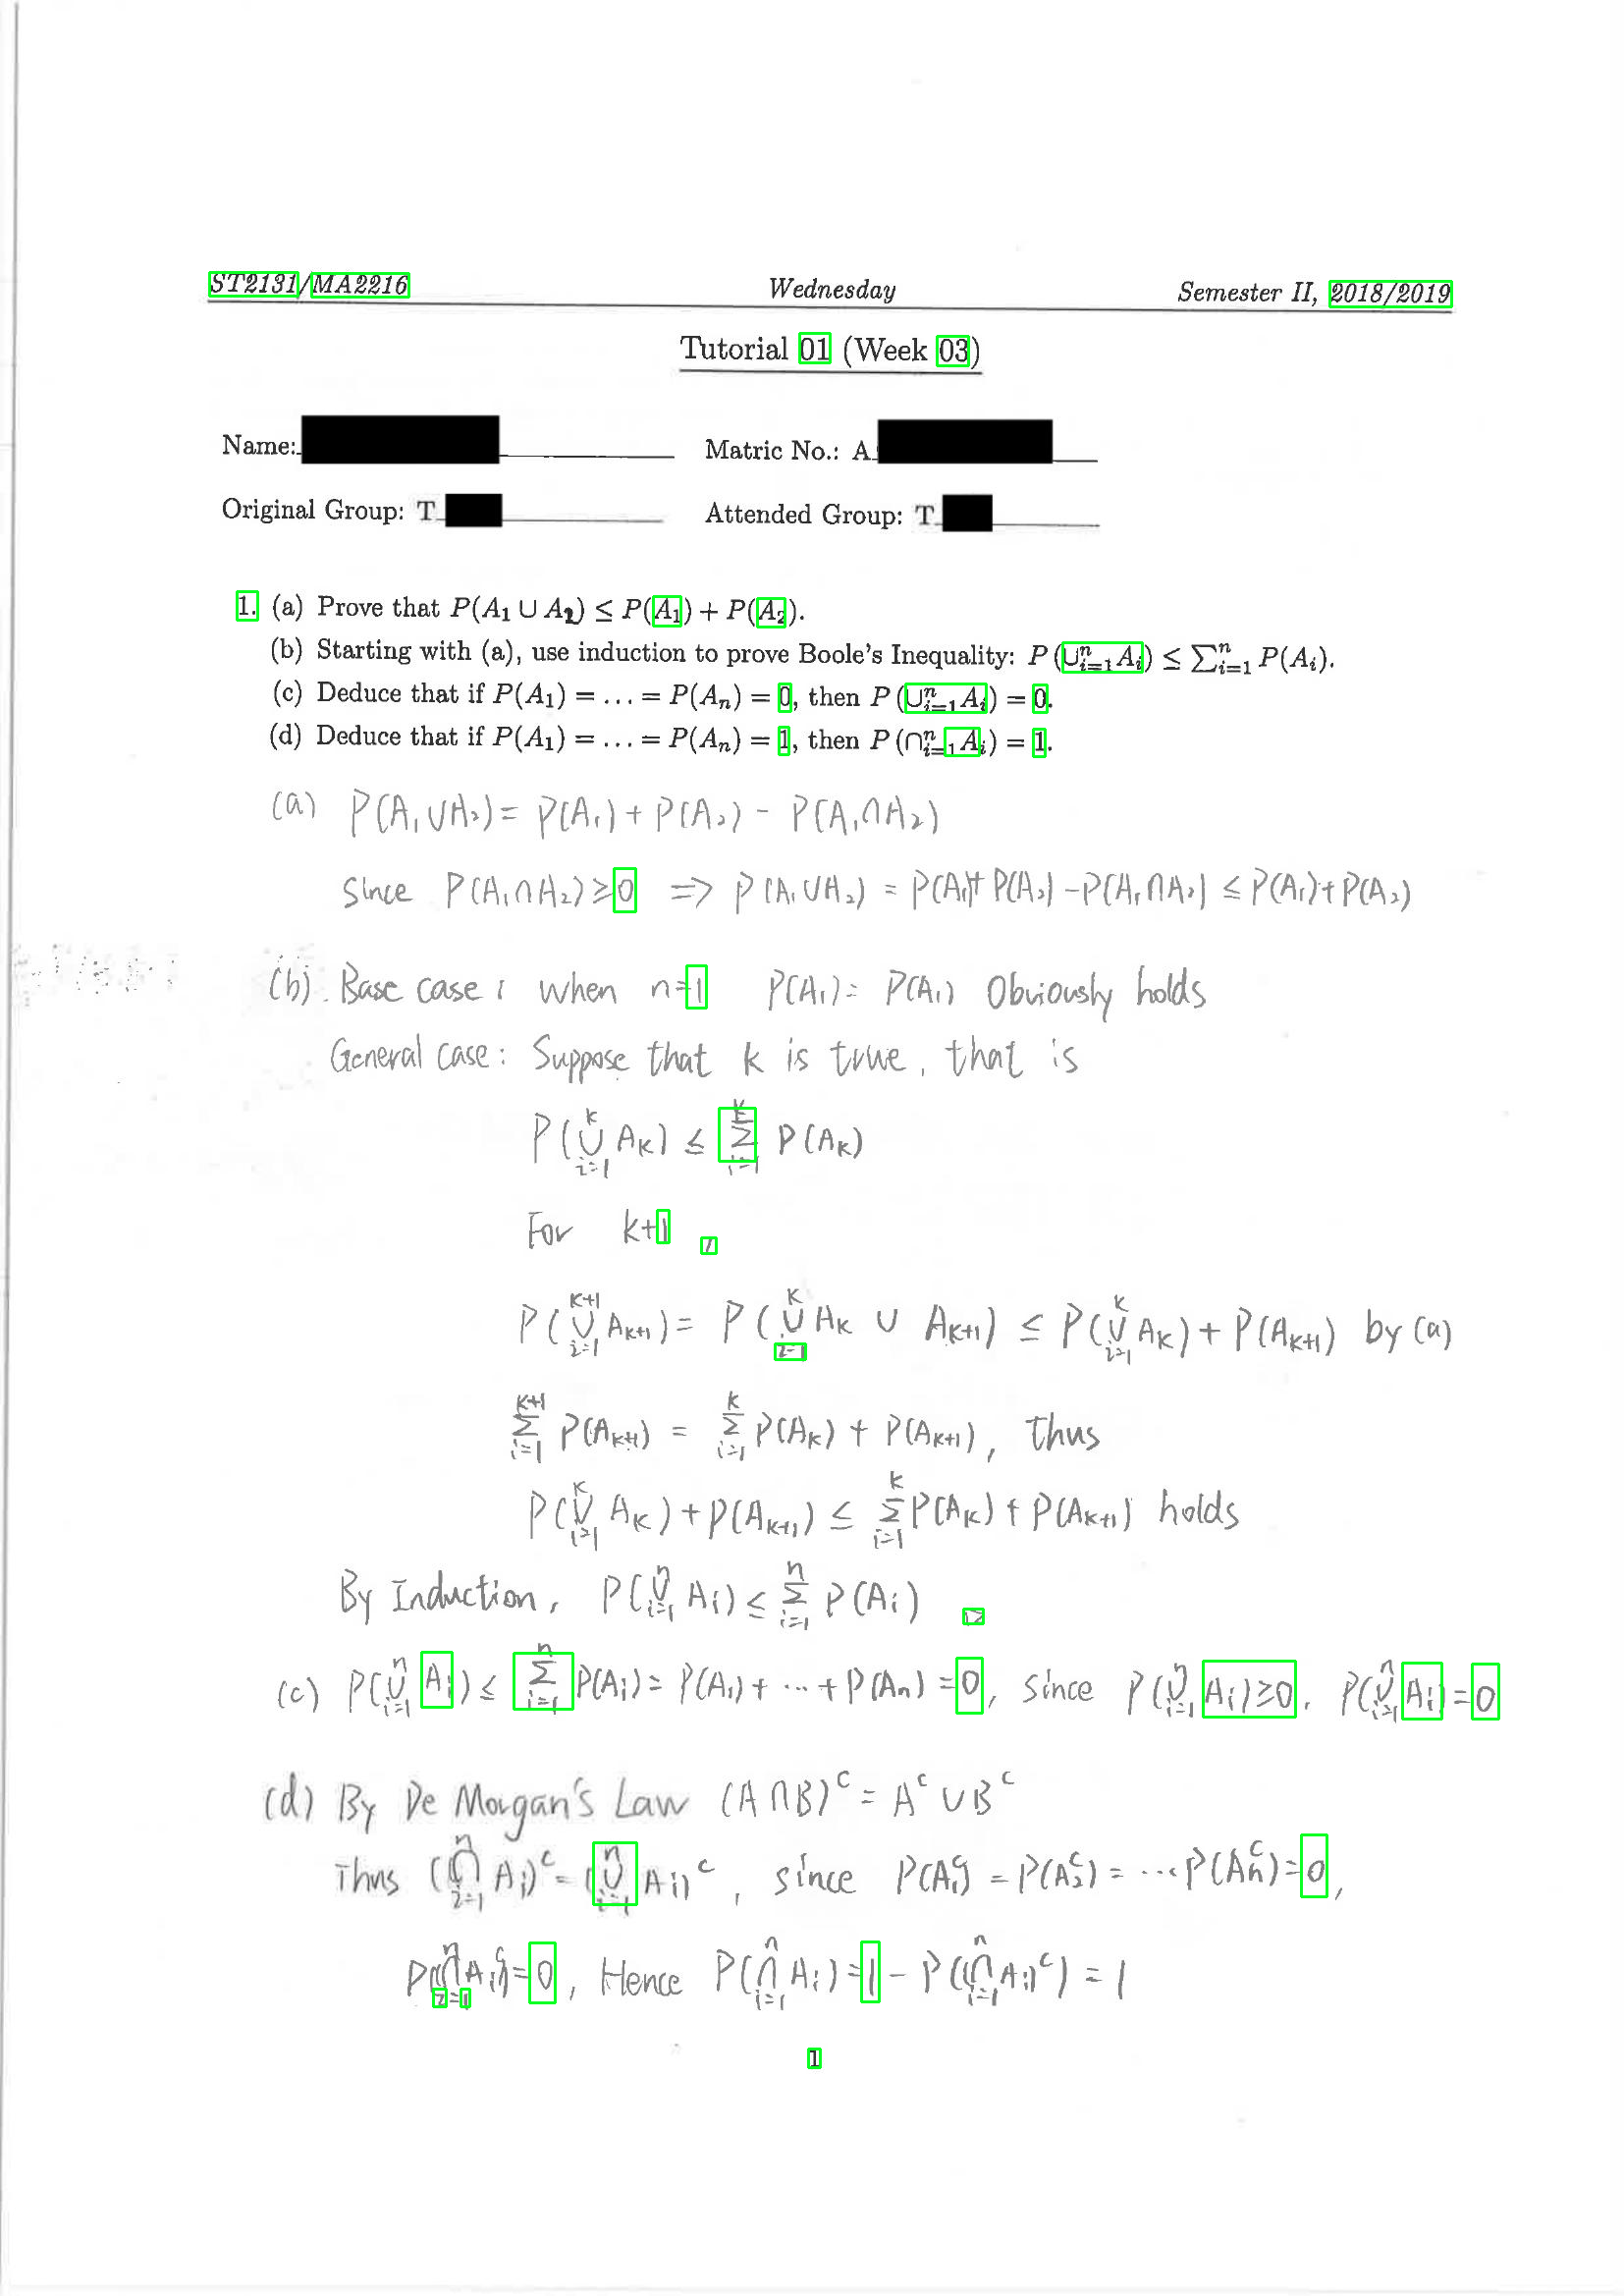 ST2131/MA2216 Wednesday Semester II, 2018/2019
Tutorial 01 (Week 03)
Name: Matric No.: A
Original Group: T Attended Group: T
1. (a) Prove that P(A₁ ∪ A₂) ≤ P(A₁) + P(A₂).
(b) Starting with (a), use induction to prove Boole's Inequality: P(∪ⁿᵢ₌₁Aᵢ) ≤ ∑ⁿᵢ₌₁ P(Aᵢ).
(c) Deduce that if P(A₁) = ... = P(Aₙ) = 0, then P(∪ⁿᵢ₌₁Aᵢ) = 0.
(d) Deduce that if P(A₁) = ... = P(Aₙ) = 1, then P(∩ⁿᵢ₌₁Aᵢ) = 1.
(a) P(A₁∪A₂) = P(A₁) + P(A₂) - P(A₁∩A₂)
Since P(A₁∩A₂) ≥ 0 => P(A₁∪A₂) = P(A₁)+P(A₂)-P(A₁∩A₂) ≤ P(A₁)+P(A₂)
(b). Base case: when n=1 P(A₁) = P(A₁) Obviously holds
General case: Suppose that k is true, that is
P(∪ᵏᵢ₌₁ Aₖ) ≤ ∑ᵏᵢ₌₁ P(Aₖ)
For k+1,
P(∪ᵏ⁺¹ᵢ₌₁ Aₖ₊₁) = P(∪ᵏᵢ₌₁ Aₖ ∪ Aₖ₊₁) ≤ P(∪ᵏᵢ₌₁ Aₖ) + P(Aₖ₊₁) by (a)
∑ᵏ⁺¹ᵢ₌₁ P(Aₖ₊₁) = ∑ᵏᵢ₌₁ P(Aₖ) + P(Aₖ₊₁), thus
P(∪ᵏᵢ₌₁ Aₖ) + P(Aₖ₊₁) ≤ ∑ᵏᵢ₌₁ P(Aₖ) + P(Aₖ₊₁) holds
By Induction, P(∪ⁿᵢ₌₁ Aᵢ) ≤ ∑ⁿᵢ₌₁ P(Aᵢ)
(c) P(∪ⁿᵢ₌₁ Aᵢ) ≤ ∑ⁿᵢ₌₁ P(Aᵢ) = P(A₁) + ... + P(Aₙ) = 0, since P(∪ⁿᵢ₌₁ Aᵢ) ≥ 0, P(∪ⁿᵢ₌₁ Aᵢ) = 0
(d) By De Morgan's Law (A∩B)ᶜ = Aᶜ∪Bᶜ
Thus (∩ⁿᵢ₌₁ Aᵢ)ᶜ = (∪ⁿᵢ₌₁ Aᵢ)ᶜ, since P(A₁ᶜ) = P(A₂ᶜ) = ... P(Aₙᶜ) = 0,
P(∩ⁿᵢ₌₁ Aᵢ)ᶜ = 0, Hence P(∩ⁿᵢ₌₁ Aᵢ) = 1 - P((∩ⁿᵢ₌₁ Aᵢ)ᶜ) = 1
1